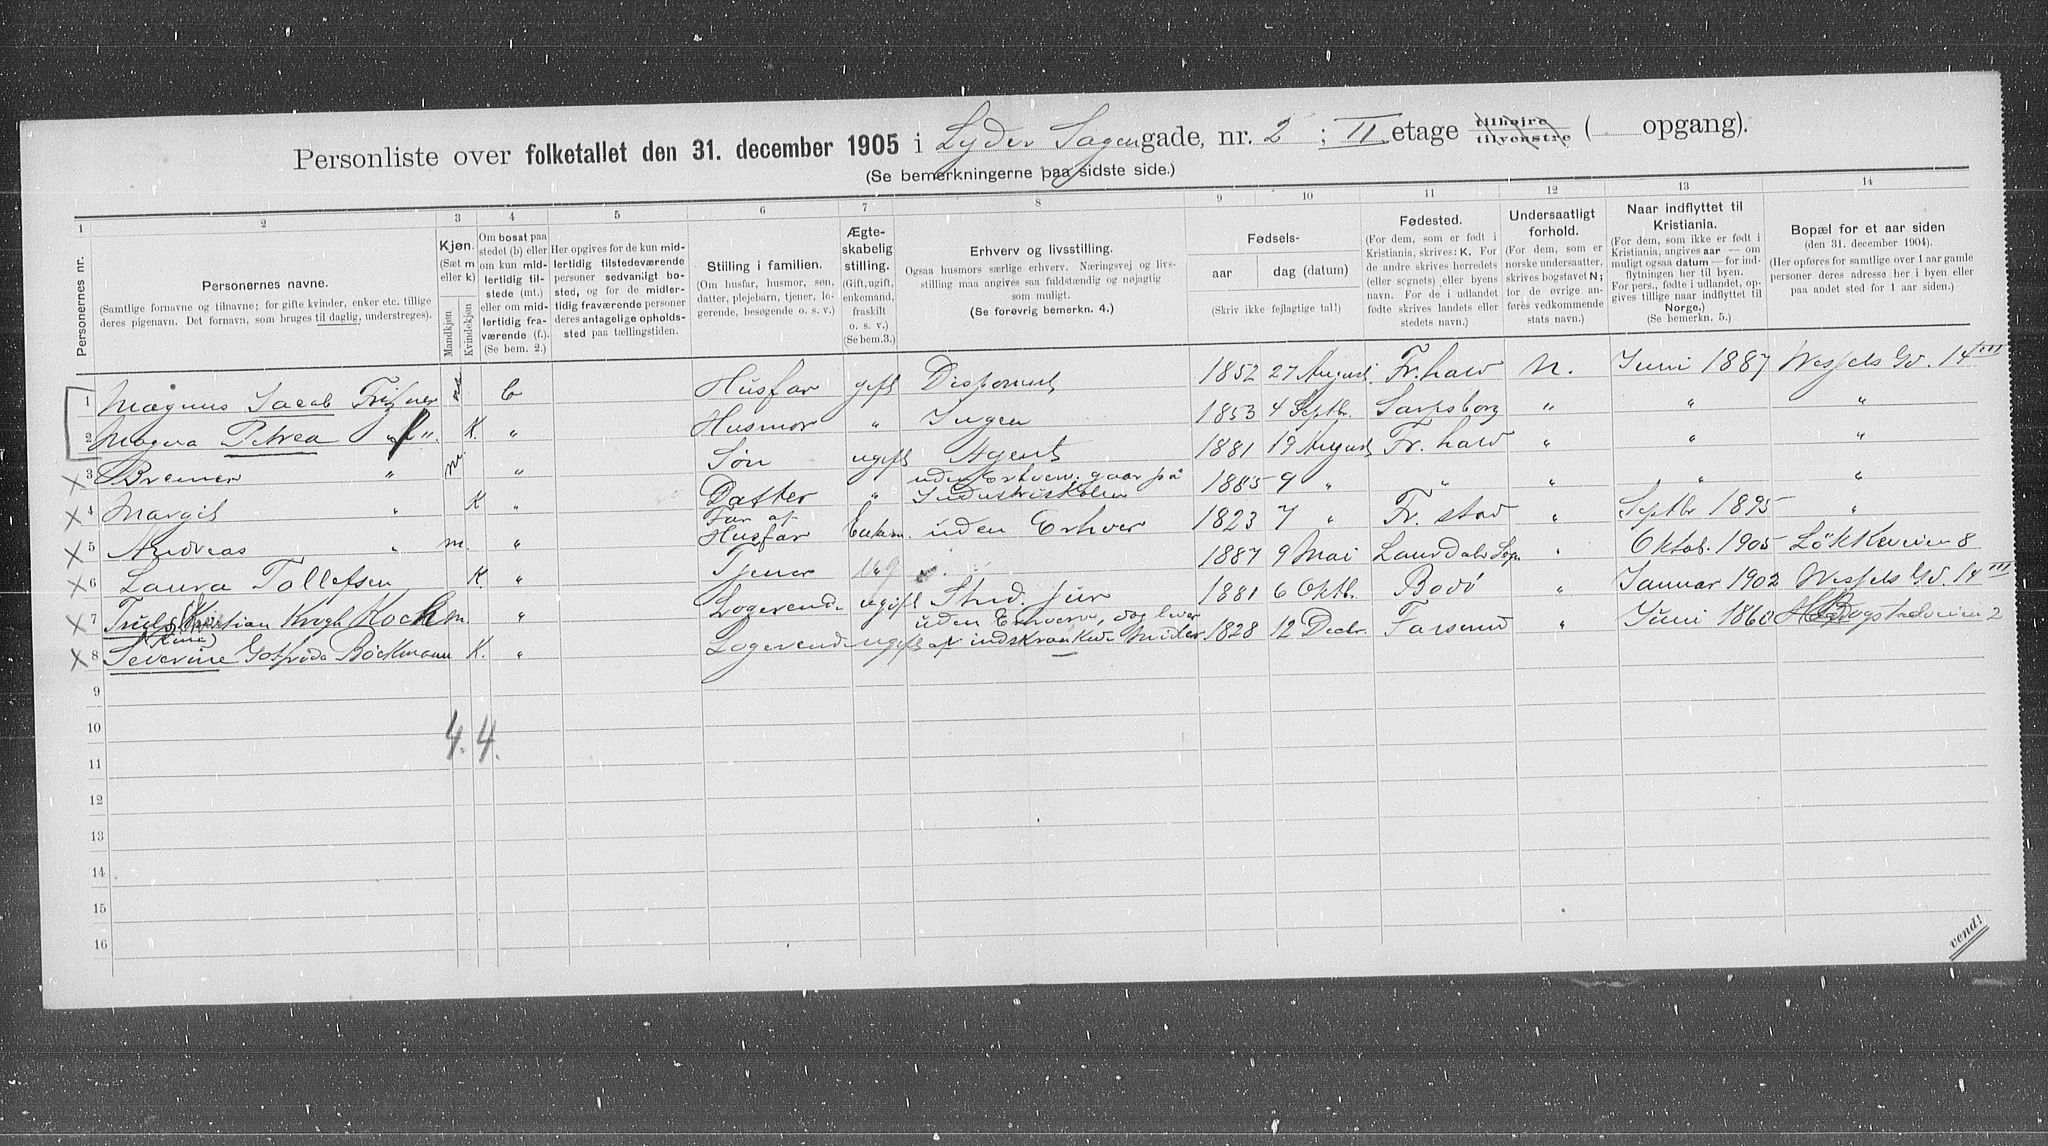 Personliste over folketallet den 31. december 1905 i Lyder Sagengade, nr. 2 ; II etage tilhøire tilvenstre ( opgang).
(Se bemerkningerne paa sidste side.)
1 2 3 4 5 6 7 8 9 10 11 12 13 14
Personernes nr.
Personernes navne.
(Samtlige fornavne og tilnavne; for gifte kvinder, enker etc. tillige deres pigenavn. Det fornavn, som bruges til daglig, understreges).
Kjøn.
(Sæt m eller k)
Mandkjøn
Kvindekjøn
Om bosat paa stedet (b) eller om kun midlertidig tilstede (mt.) eller om midlertidig fraværende (f.).
(Se bem. 2.)
Her opgives for de kun midlertidig tilstedeværende personer sedvanligt bosted, og for de midlertidig fraværende personer deres antagelige opholdssted paa tællingstiden.
Stilling i familien.
(Om husfar, husmor, søn, datter, plejebarn, tjener, logerende, besøgende o. s. v.)
Ægteskabelig stilling.
(Gift, ugift, enkemand, fraskilt o. s. v.)
(Se bem.3.)
Erhverv og livsstilling.
Ogsaa husmors særlige erhverv. Næringsvej og livsstilling maa angives saa fuldstændig og nøjagtig som muligt.
(Se forøvrig bemerkn. 4.)
Fødsels-
aar
dag (datum)
(Skriv ikke fejlagtige tal!)
Fødested.
(For dem, som er født i Kristiania, skrives: K. For de andre skrives herredets (eller sognets) eller byens navn. For de i udlandet fødte skrives landets eller stedets navn.)
Undersaatligt forhold.
(For dem, som er norske undersaatter, skrives bogstavet N; for de øvrige anføres vedkommende stats navn.)
Naar indflyttet til Kristiania.
(For dem, som ikke er født i Kristiania, angives aar — om muligt ogsaa datum — for indflytningen her til byen. For pers., fødte i udlandet, opgives tillige naar indflyttet til Norge.)
(Se bemerkn. 5.)
Bopæl for et aar siden
(den 31. december 1904).
(Her opføres for samtlige over 1 aar gamle personer deres adresse her i byen eller paa andet sted for 1 aar siden.)
1 Magnus Jacob Fritzner m b Husfar gift Disponent 1852 27 August Fr.hald N. Juni 1887 Wessels Gd. 14 III
2 Magna Petrea " K. " Husmor " Ingen 1853 4 Septbr. Sarpsborg " " "
3 Bremer " m. " Søn ugift Agent 1881 19 August Fr. hald " " "
4 Margit " K " Datter " uden Erhverv, gaar på Industriskolen 1885 9 " " " " "
5 Andreas " m. " Far af Husfar Enkem. uden Erhver 1823 7 " Fr. stad " Septbr 1895 "
6 Laura Tollefsen K. " Tjener ug 1887 9 Mai Laurdals Sogn " Oktob. 1905 Løkkeveien 8
7 Truls Kristian Krogh Koch m " Logerende ugift Stud. jur 1881 6 Oktb. Bodø " Januar 1902 Wessels Gd. 14 III
8 Severine Gotfrida Böckmann K. " Logerende ugift uden Erhverv, og lever af indskrænkede Midler 1828 12 Decbr. Farsund " Juni 1860 Bogstadveien 2
9
10
4. 4.
11
12
13
14
15
16
vend!